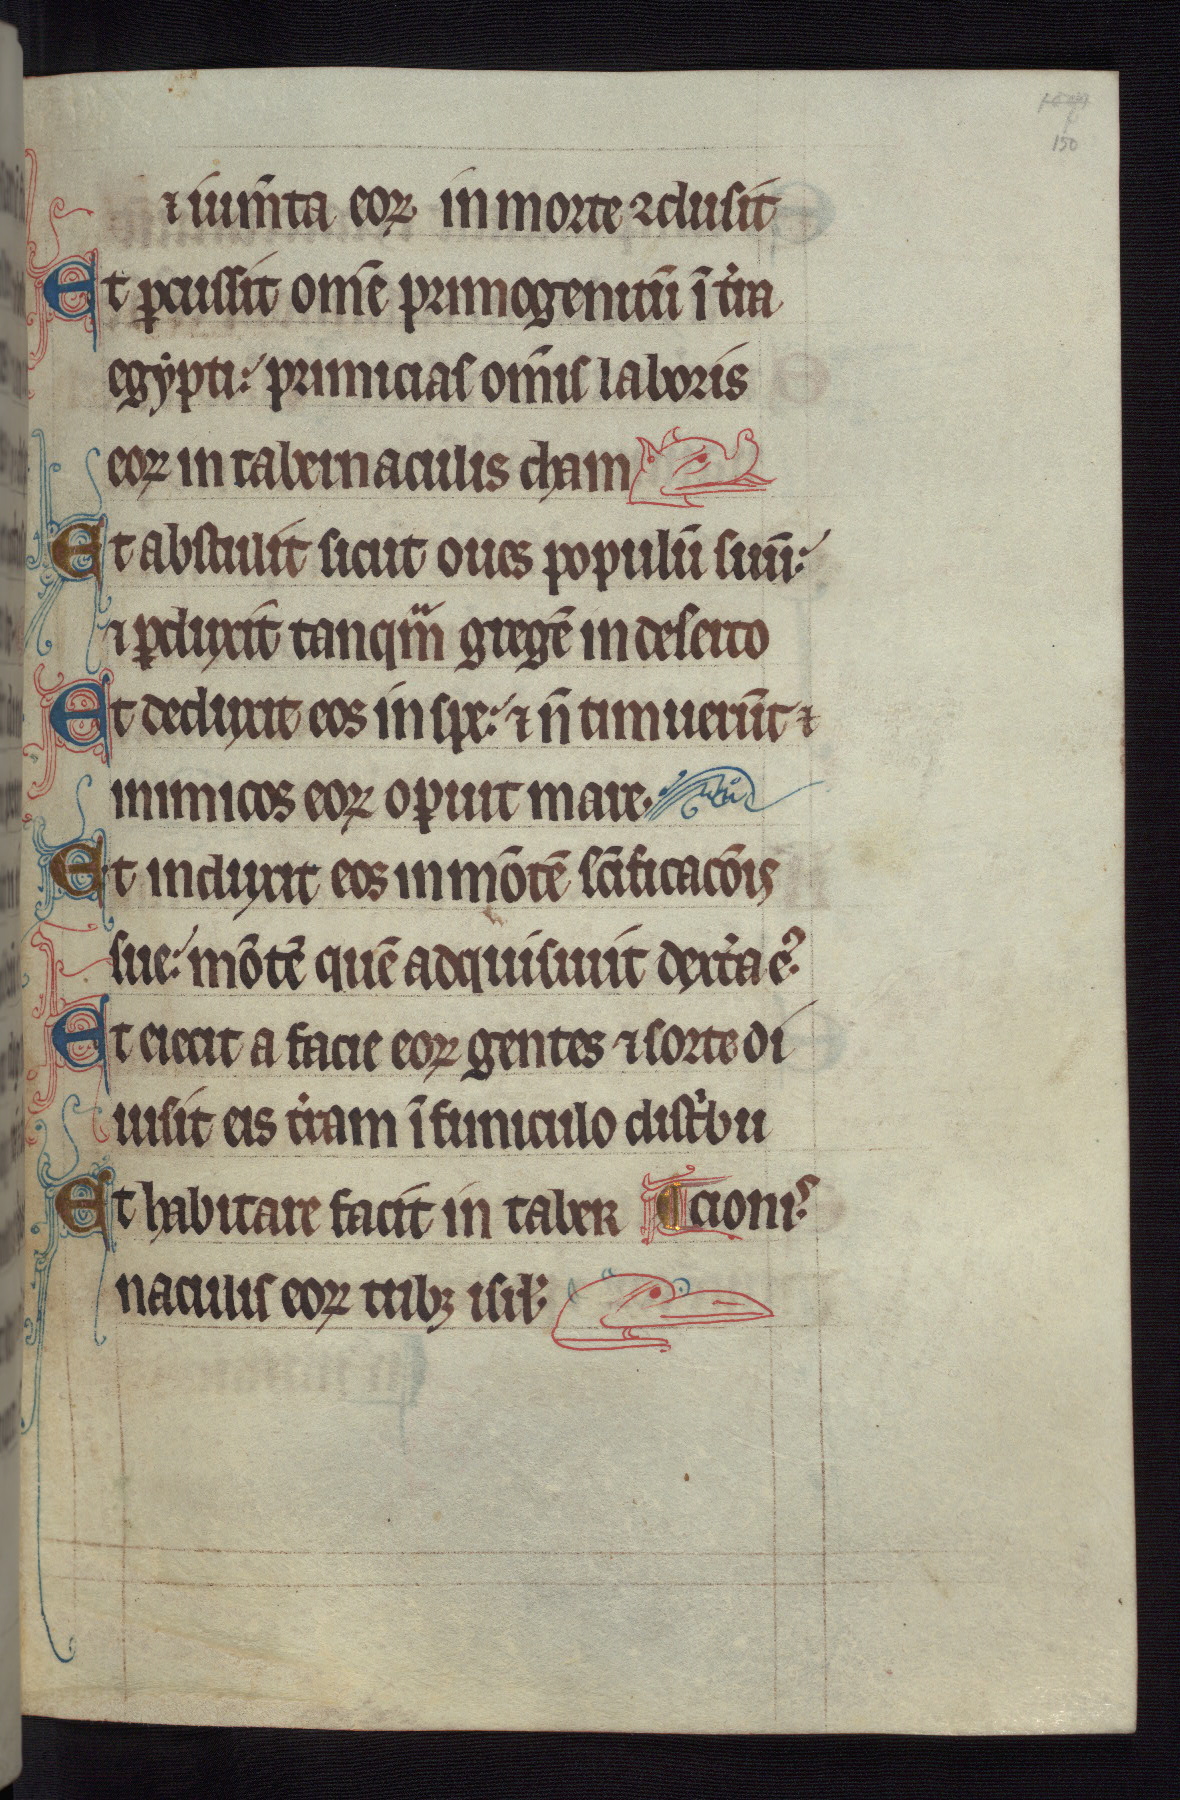 150
⁊ ium̄ta eoꝝ in morte ↄclusit
Et ꝑcussit om̄e primogenitū ī t̓ra
egẏpti: primicias om̄is laboris
eoꝝ in tabernaculis cham
Et abstulit sicut oues populū suū:
⁊ ꝑduxit̄ tanqᷓm gregē in deserto
Et deduxit eos in spe: ⁊ n̄ timuerūt ⁊
inimicos eoꝝ oꝑuit mare.
Et induxit eos in mōtē sc̄ificacōis
sue: mōtē quē adquisiuit dext̓a eꝰ.
Et eiecit a facie eoꝝ gentes ⁊ sorte di
uisit eis t̓ram ī funiculo dist̓bu
Et habitare facit in taber ¶ cionis
naculis eoꝝ tribꝫ isrl̓.